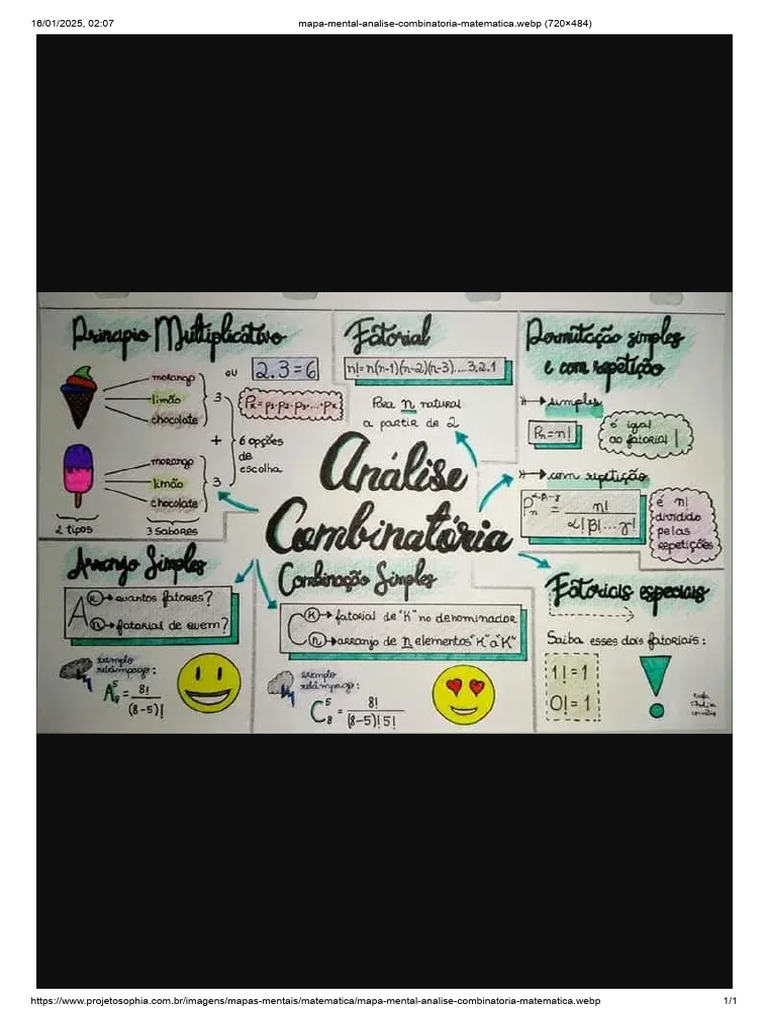 16/01/2025, 02:07
mapa-mental-analise-combinatoria-matematica.webp (720×484)
Princípio Multiplicativo
morango
limão
chocolate
3
ou
2.3=6
+
6 opções
de
escolha
morango
limão
chocolate
3
2 tipos
3 sabores
Fatorial
n!=n(n-1)(n-2)(n-3)....3.2.1
Para n natural
a partir de 2
Permutação simples
e com repetição
simples
Pn=n!
é igual
ao fatorial!
com repetição
n!
α!β!...γ!
é n!
dividido
pelas
repetições
Análise
Combinatória
Arranjo Simples
A
k → quantos fatores?
n → fatorial de quem?
exemplo
relâmpago:
A 5 8 = 8!
(8-5)!
Combinação Simples
C
k → fatorial de "K" no denominador
n → arranjo de n elementos "K" a "K"
exemplo
relâmpago:
C 5 8 = 8!
(8-5)!5!
Fatoriais especiais
Saiba esses dois fatoriais:
1!=1
0!=1
https://www.projetosophia.com.br/imagens/mapas-mentais/matematica/mapa-mental-analise-combinatoria-matematica.webp
1/1